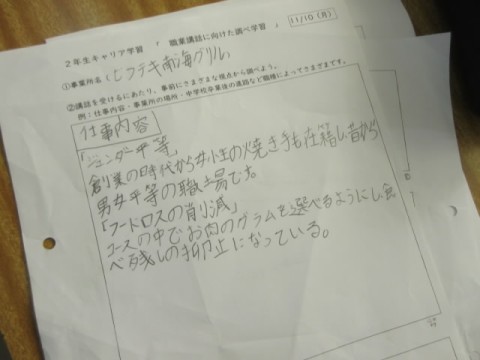 11/10(月)
2年生キャリア学習 職業講話に向けた調べ学習
①事業所名(ビフテキ南海グリル
②講話を受けるにあたり、事前にさまざまな視点から調べよう。
例:仕事内容・事業所の場所・中学校卒業後の進路など職種によってさまざまです。
仕事内容
「ジェンダー平等」
創業の時代から女性の焼き手も在籍し昔から
男女平等の職場です。
「フードロスの削減」
コースの中でお肉のグラムを選べるようにし、食
べ残しの抑止になっている。